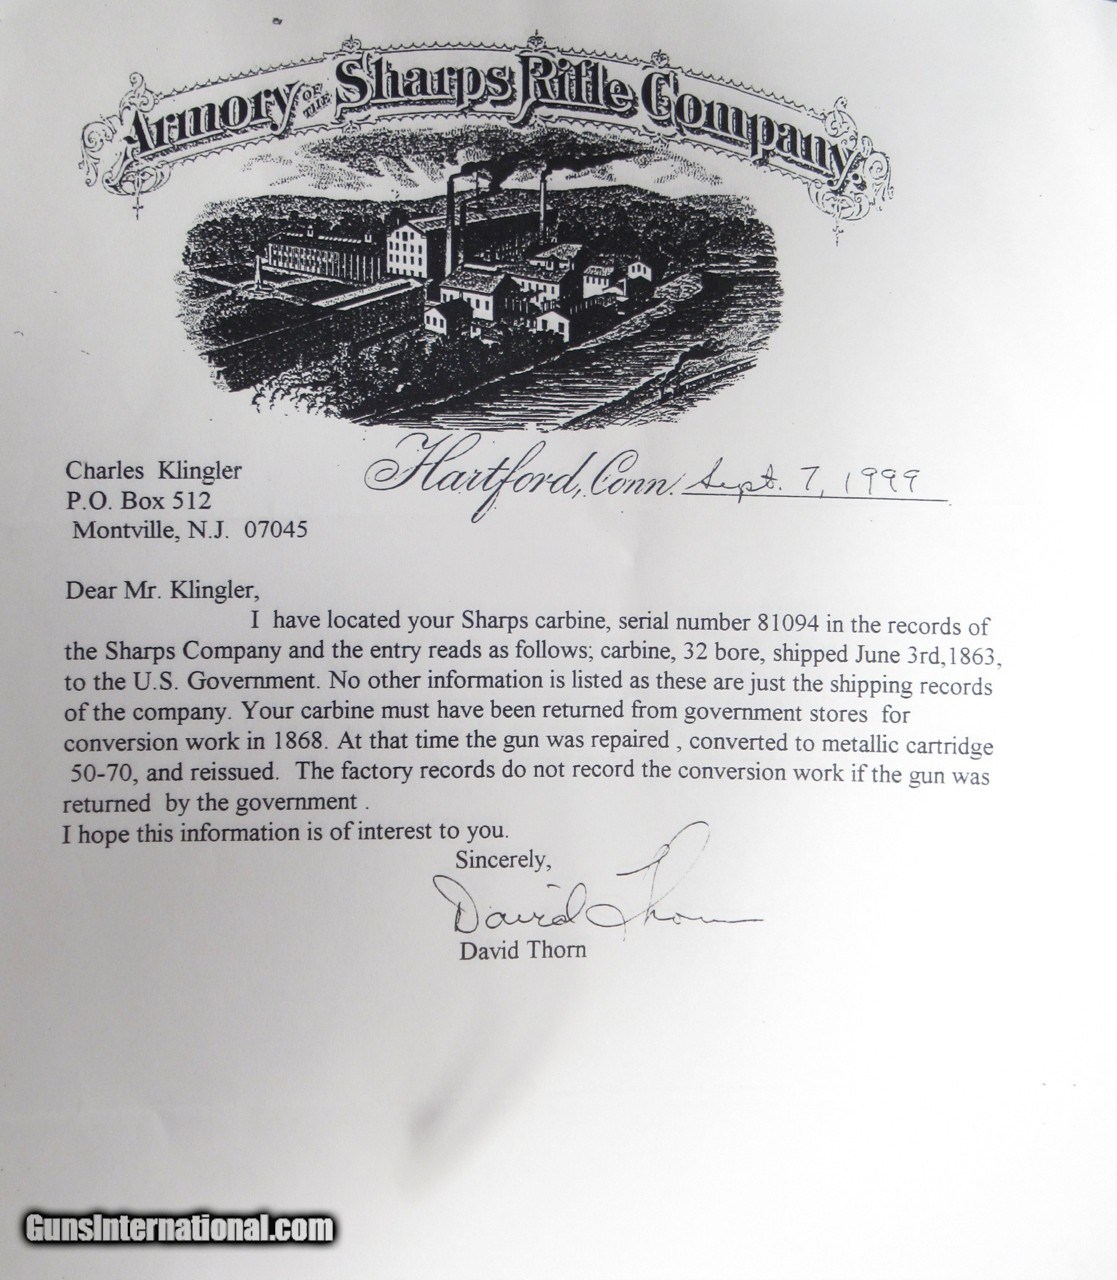 Armory OF THE Sharps Rifle Company.
Hartford, Conn. Sept. 7, 1999
Charles Klingler
P.O. Box 512
Montville, N.J. 07045
Dear Mr. Klingler,
I have located your Sharps carbine, serial number 81094 in the records of
the Sharps Company and the entry reads as follows; carbine, 32 bore, shipped June 3rd,1863,
to the U.S. Government. No other information is listed as these are just the shipping records
of the company. Your carbine must have been returned from government stores for
conversion work in 1868. At that time the gun was repaired , converted to metallic cartridge
50-70, and reissued. The factory records do not record the conversion work if the gun was
returned by the government .
I hope this information is of interest to you.
Sincerely,
David Thorn
David Thorn
GunsInternational.com